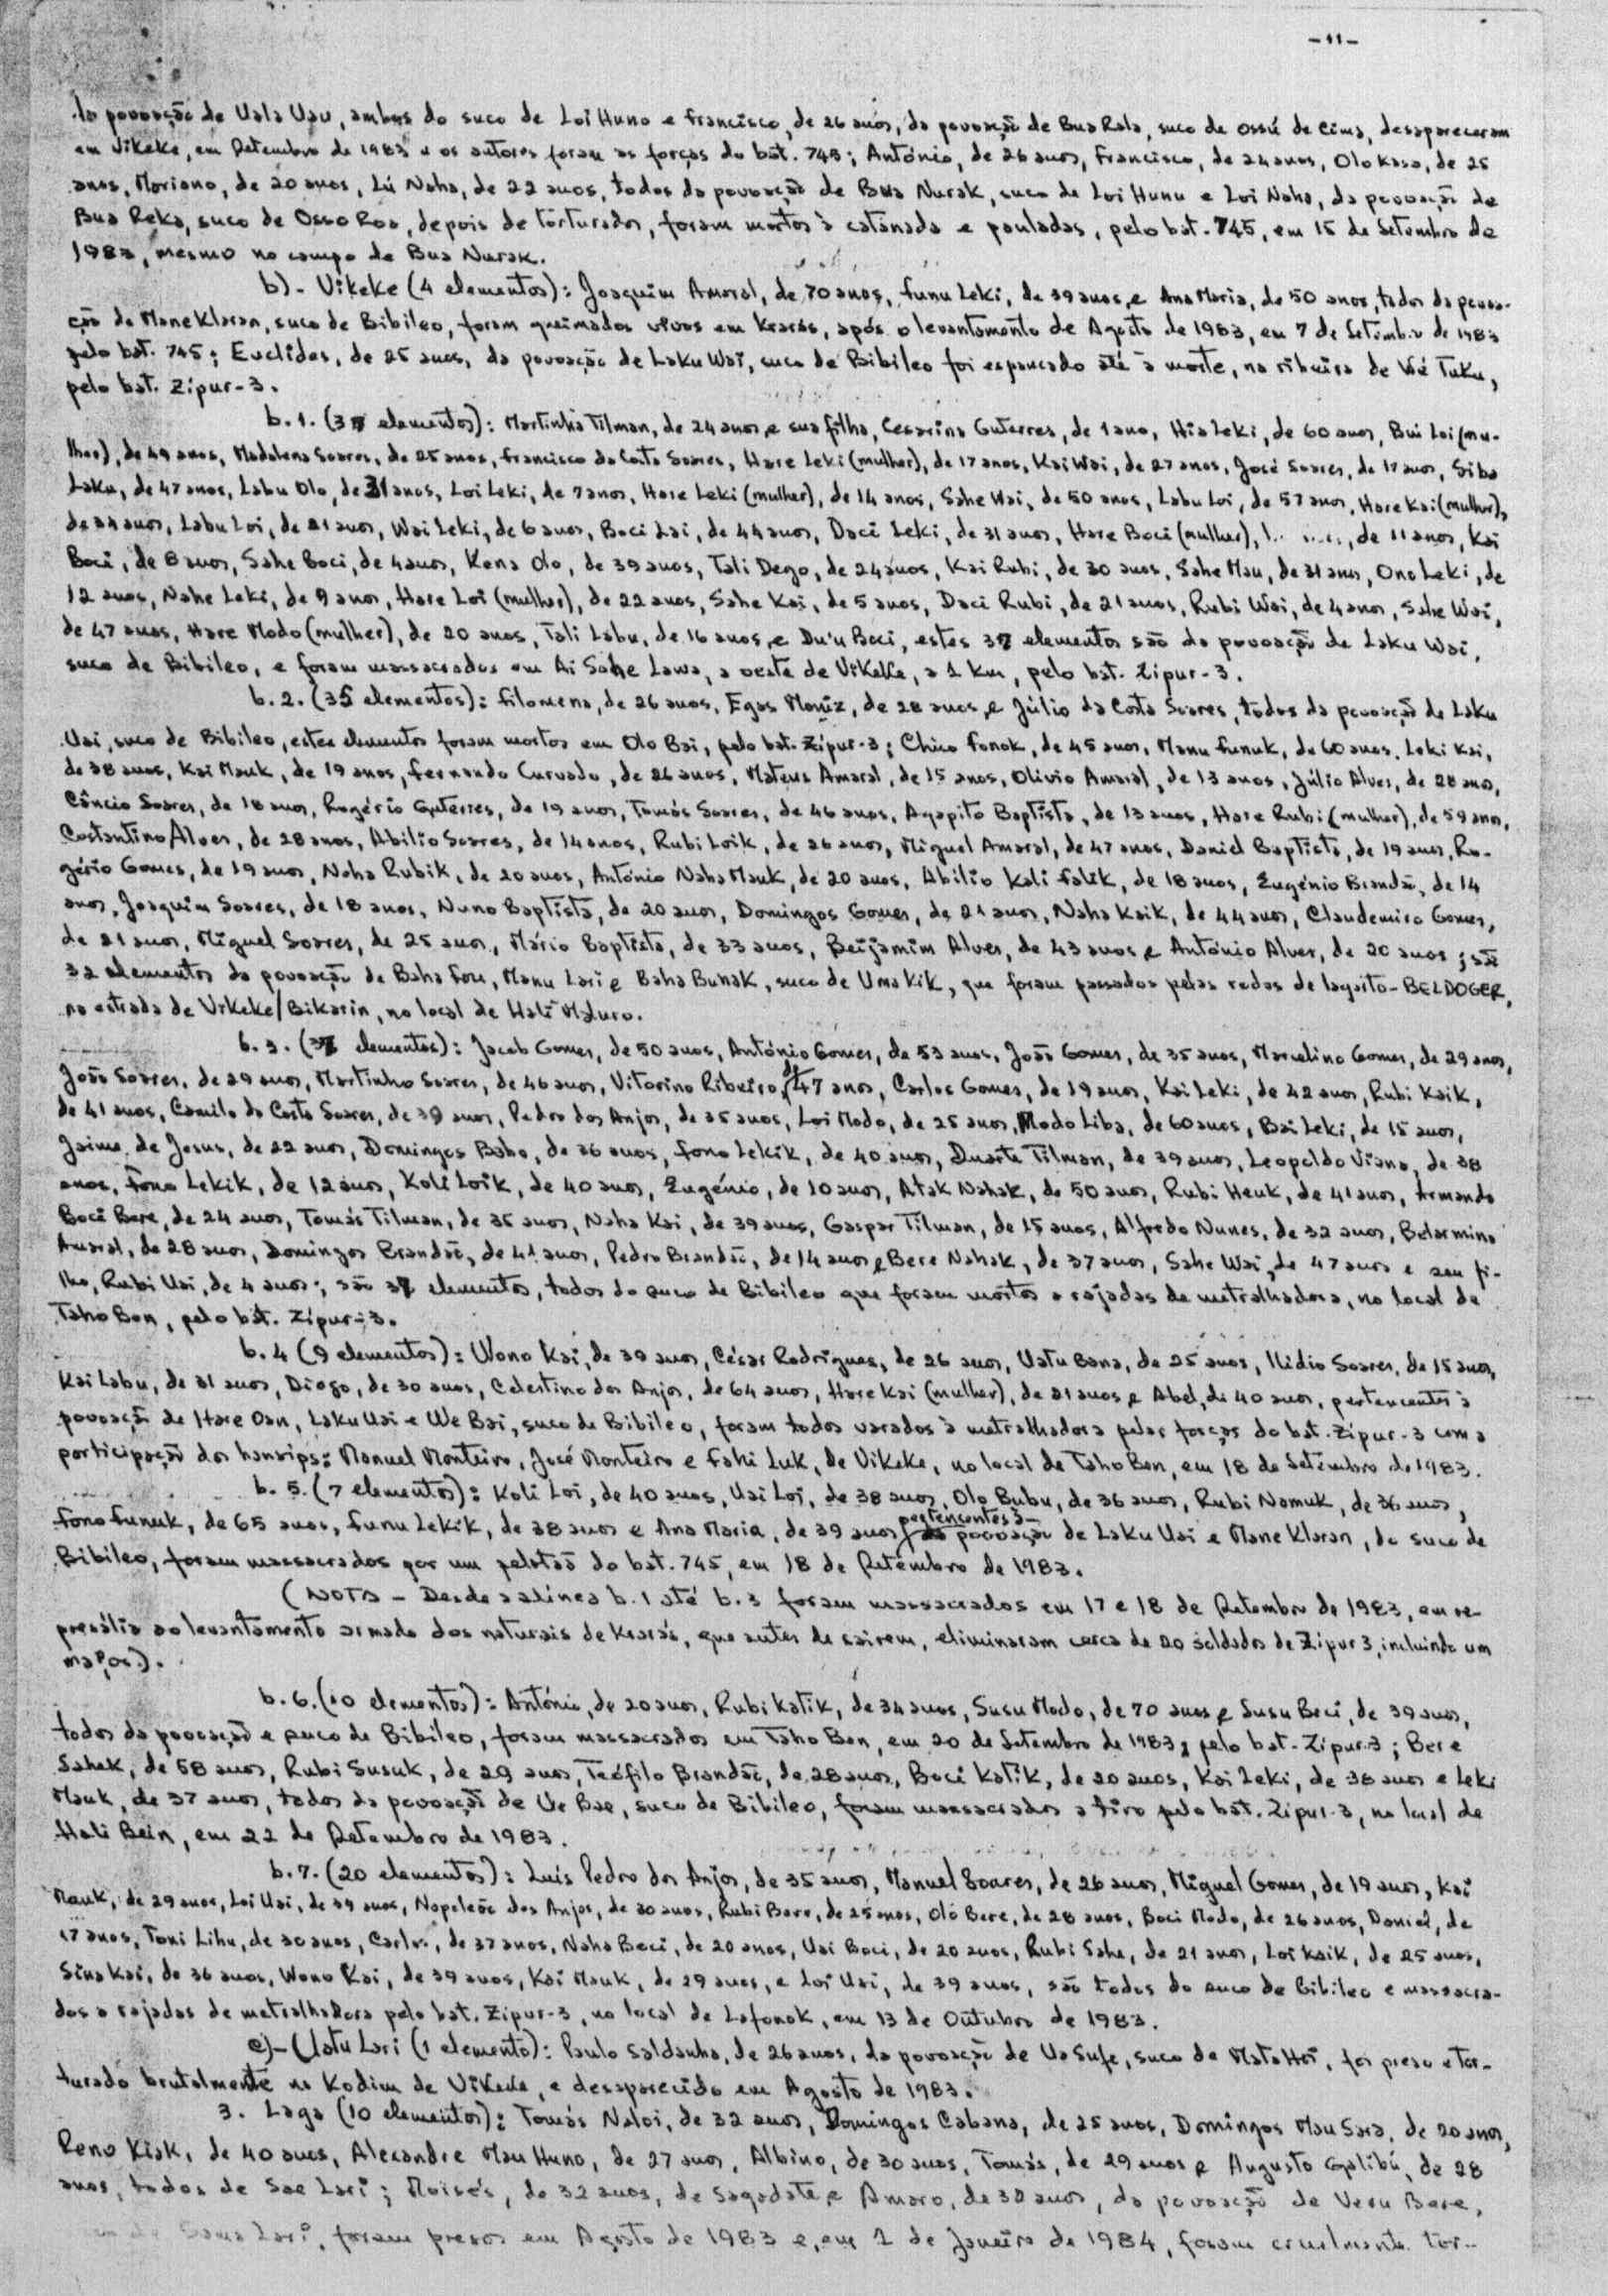 - 11 -
da povoação de Uala Uau, ambos do suco de Loi Huno e Francisco, de 26 anos, da povoação de Bua Rala, suco de Ossú de Cima, desapareceram
em Vikeke, em Setembro de 1983 e os autores foram as forças do bat. 745; António, de 26 anos, Francisco, de 24 anos, Olo Kasa, de 25
anos, Mariano, de 20 anos, Lú Naha, de 22 anos, todos da povoação de Bua Nurak, suco de Loi Hunu e Loi Naha, da povoação de
Bua Reka, suco de Osso Roa, depois de torturados, foram mortos à catanada e pauladas, pelo bat. 745, em 15 de Setembro de
1983, mesmo no campo de Bua Nurak.
b) - Vikeke (4 elementos): Joaquim Amaral, de 70 anos, Funu Leki, de 39 anos, e Ana Maria, de 50 anos, todos da povoa-
ção de Mane Klaran, suco de Bibileo, foram queimados vivos em Krarás, após o levantamento de Agosto de 1983, em 7 de Setembro de 1983
pelo bat. 745; Euclides, de 25 anos, da povoação de Laku Wai, suco de Bibileo foi espancado até à morte, na ribeira de Wé Tuku,
pelo bat. Zipur-3.
b.1. (37 elementos): Martinha Tilman, de 24 anos, e sua filha, Cesarina Guterres, de 1 ano, Hia Leki, de 60 anos, Bui Loi (mu-
lher), de 49 anos, Madalena Soares, de 25 anos, Francisco da Costa Soares, Hare Leki (mulher), de 17 anos, Kai Wai, de 27 anos, José Soares, de 17 anos, Siba
Laku, de 47 anos, Labu Olo, de 31 anos, Loi Leki, de 7 anos, Hare Leki (mulher), de 14 anos, Sahe Wai, de 50 anos, Labu Loi, de 57 anos, Hare Kai (mulher),
de 34 anos, Labu Loi, de 21 anos, Wai Leki, de 6 anos, Boci Lai, de 44 anos, Daci Leki, de 31 anos, Hare Boci (mulher), de 11 anos, Kai
Boci, de 8 anos, Sahe Boci, de 4 anos, Kena Olo, de 39 anos, Tali Dego, de 24 anos, Kai Rubi, de 30 anos, Sahe Mau, de 31 anos, Ono Leki, de
12 anos, Nahe Leki, de 9 anos, Hare Loi (mulher), de 22 anos, Sahe Kai, de 5 anos, Daci Rubi, de 21 anos, Rubi Wai, de 4 anos, Sahe Wai,
de 47 anos, Hare Modo (mulher), de 20 anos, Tali Labu, de 16 anos, e Du'u Boci, estes 37 elementos são da povoação de Laku Wai,
suco de Bibileo, e foram massacrados em Ai Sahe Lawa, a oeste de Vikeke, a 1 km, pelo bat. Zipur-3.
b.2. (35 elementos): Filomena, de 26 anos, Egas Moniz, de 28 anos, e Júlio da Costa Soares, todos da povoação de Laku
Uai, suco de Bibileo, estes elementos foram mortos em Olo Bai, pelo bat. Zipur-3; Chico Fonok, de 45 anos, Manu Funuk, de 60 anos, Leki Kai,
de 38 anos, Kai Mauk, de 19 anos, Fernando Curvado, de 26 anos, Mateus Amaral, de 15 anos, Olívio Amaral, de 13 anos, Júlio Alves, de 28 anos,
Câncio Soares, de 18 anos, Rogério Guterres, de 19 anos, Tomás Soares, de 46 anos, Agapito Baptista, de 13 anos, Hare Rubi (mulher), de 59 anos,
Costantino Alves, de 28 anos, Abílio Soares, de 14 anos, Rubi Loik, de 26 anos, Miguel Amaral, de 47 anos, Daniel Baptista, de 19 anos, Ro-
gério Gomes, de 19 anos, Naha Rubik, de 20 anos, António Naha Mauk, de 20 anos, Abílio Kali Falik, de 18 anos, Eugénio Brandão, de 14
anos, Joaquim Soares, de 18 anos, Nuno Baptista, de 20 anos, Domingos Gomes, de 21 anos, Naha Kaik, de 44 anos, Claudemiro Gomes,
de 21 anos, Miguel Soares, de 25 anos, Mário Baptista, de 33 anos, Beijamim Alves, de 43 anos e António Alves, de 20 anos; são
32 elementos da povoação de Baha Fou, Manu Lari e Baha Bunak, suco de Uma Kik, que foram passados pelas rodas de lagarto-BELDOGER,
na estrada de Vikeke/Bikarin, no local de Hali Maduro.
b.3. (37 elementos): Jacob Gomes, de 50 anos, António Gomes, de 53 anos, João Gomes, de 35 anos, Marcelino Gomes, de 29 anos,
João Soares, de 29 anos, Martinho Soares, de 46 anos, Vitorino Ribeiro, de 47 anos, Carlos Gomes, de 19 anos, Kai Leki, de 42 anos, Rubi Kaik,
de 41 anos, Camilo da Costa Soares, de 39 anos, Pedro dos Anjos, de 35 anos, Loi Modo, de 25 anos, Modo Liba, de 60 anos, Bai Leki, de 15 anos,
Jaime de Jesus, de 22 anos, Domingos Baho, de 36 anos, Fono Lekik, de 40 anos, Duarte Tilman, de 39 anos, Leopoldo Viana, de 38
anos, Fono Lekik, de 12 anos, Koli Loik, de 40 anos, Eugénio, de 10 anos, Atak Nahak, de 50 anos, Rubi Heuk, de 41 anos, Armando
Boci Bere, de 24 anos, Tomás Tilman, de 35 anos, Naha Kai, de 39 anos, Gaspar Tilman, de 15 anos, Alfredo Nunes, de 32 anos, Belarmino
Amaral, de 28 anos, Domingos Brandão, de 41 anos, Pedro Brandão, de 14 anos e Bere Nahak, de 37 anos, Sahe Wai, de 47 anos e seu fi-
lho, Rubi Uai, de 4 anos; são 37 elementos, todos do suco de Bibileo que foram mortos a rajadas de metralhadora, no local de
Taho Ben, pelo bat. Zipur-3.
b.4 (9 elementos): Wono Kai, de 39 anos, César Rodrigues, de 26 anos, Uatu Bana, de 25 anos, Ilídio Soares, de 15 anos,
Kai Labu, de 31 anos, Diogo, de 30 anos, Celestino dos Anjos, de 64 anos, Hare Kai (mulher), de 21 anos e Abel, de 40 anos, pertencentes à
povoação de Hare Oan, Laku Uai e We Bai, suco de Bibileo, foram todos varados à metralhadora pelas forças do bat. Zipur-3 com a
participação dos hansips: Manuel Monteiro, José Monteiro e Fahi Luk, de Vikeke, no local de Taho Ben, em 18 de Setembro de 1983.
b.5. (7 elementos): Koli Loi, de 40 anos, Uai Loi, de 38 anos, Olo Bubu, de 36 anos, Rubi Namuk, de 36 anos,
Fono Funuk, de 65 anos, Funu Lekik, de 38 anos e Ana Maria, de 39 anos, pertencentes à povoação de Laku Uai e Mane Klaran, do suco de
Bibileo, foram massacrados por um pelotão do bat. 745, em 18 de Setembro de 1983.
(NOTA - Desde a alínea b.1 até b.3 foram massacrados em 17 e 18 de Setembro de 1983, em re-
presália ao levantamento armado dos naturais de Krarás, que antes de sairem, eliminaram cerca de 20 soldados de Zipur 3, incluindo um
major.).
b.6. (10 elementos): António, de 20 anos, Rubi Katik, de 34 anos, Susu Modo, de 70 anos e Susu Beci, de 39 anos,
todos da povoação e suco de Bibileo, foram massacrados em Taho Ben, em 20 de Setembro de 1983, pelo bat. Zipur-3; Bere
Sahak, de 58 anos, Rubi Susuk, de 29 anos, Teófilo Brandão, de 28 anos, Boci Katik, de 20 anos, Kai Leki, de 38 anos e Leki
Mauk, de 37 anos, todos da povoação de Ue Bae, suco de Bibileo, foram massacrados a tiro pelo bat. Zipur-3, no local de
Hali Bein, em 22 de Setembro de 1983.
b.7. (20 elementos): Luís Pedro dos Anjos, de 35 anos, Manuel Soares, de 26 anos, Miguel Gomes, de 19 anos, Kai
Mauk, de 29 anos, Loi Uai, de 39 anos, Napoleão dos Anjos, de 30 anos, Rubi Bere, de 25 anos, Olo Bere, de 28 anos, Boci Modo, de 26 anos, Daniel, de
17 anos, Toni Lihu, de 30 anos, Carlos, de 37 anos, Naha Beci, de 20 anos, Uai Boci, de 20 anos, Rubi Sahe, de 21 anos, Loi Kaik, de 25 anos,
Sina Kai, de 36 anos, Wono Kai, de 39 anos, Kai Mauk, de 29 anos, e Loi Uai, de 39 anos, são todos do suco de Bibileo e massacra-
dos a rajadas de metralhadora pelo bat. Zipur-3, no local de Lafonok, em 13 de Outubro de 1983.
c) - Uatu Lari (1 elemento): Paulo Saldanha, de 26 anos, da povoação de Va Sufe, suco de Mata Hoi, foi preso e tor-
turado brutalmente no Kodim de Vikeke, e desaparecido em Agosto de 1983.
3. Laga (10 elementos): Tomás Naloi, de 32 anos, Domingos Cabana, de 25 anos, Domingos Mau Sara, de 20 anos,
Reno Kiak, de 40 anos, Alexandre Mau Huno, de 27 anos, Albino, de 30 anos, Tomás, de 29 anos e Augusto Galibú, de 28
anos, todos de Sae Lari; Moisés, de 32 anos, de Sagadate, e Amaro, de 38 anos, da povoação de Veru Bere,
de Sama Lari, foram presos em Agosto de 1983 e, em 1 de Janeiro de 1984, foram cruelmente tor-